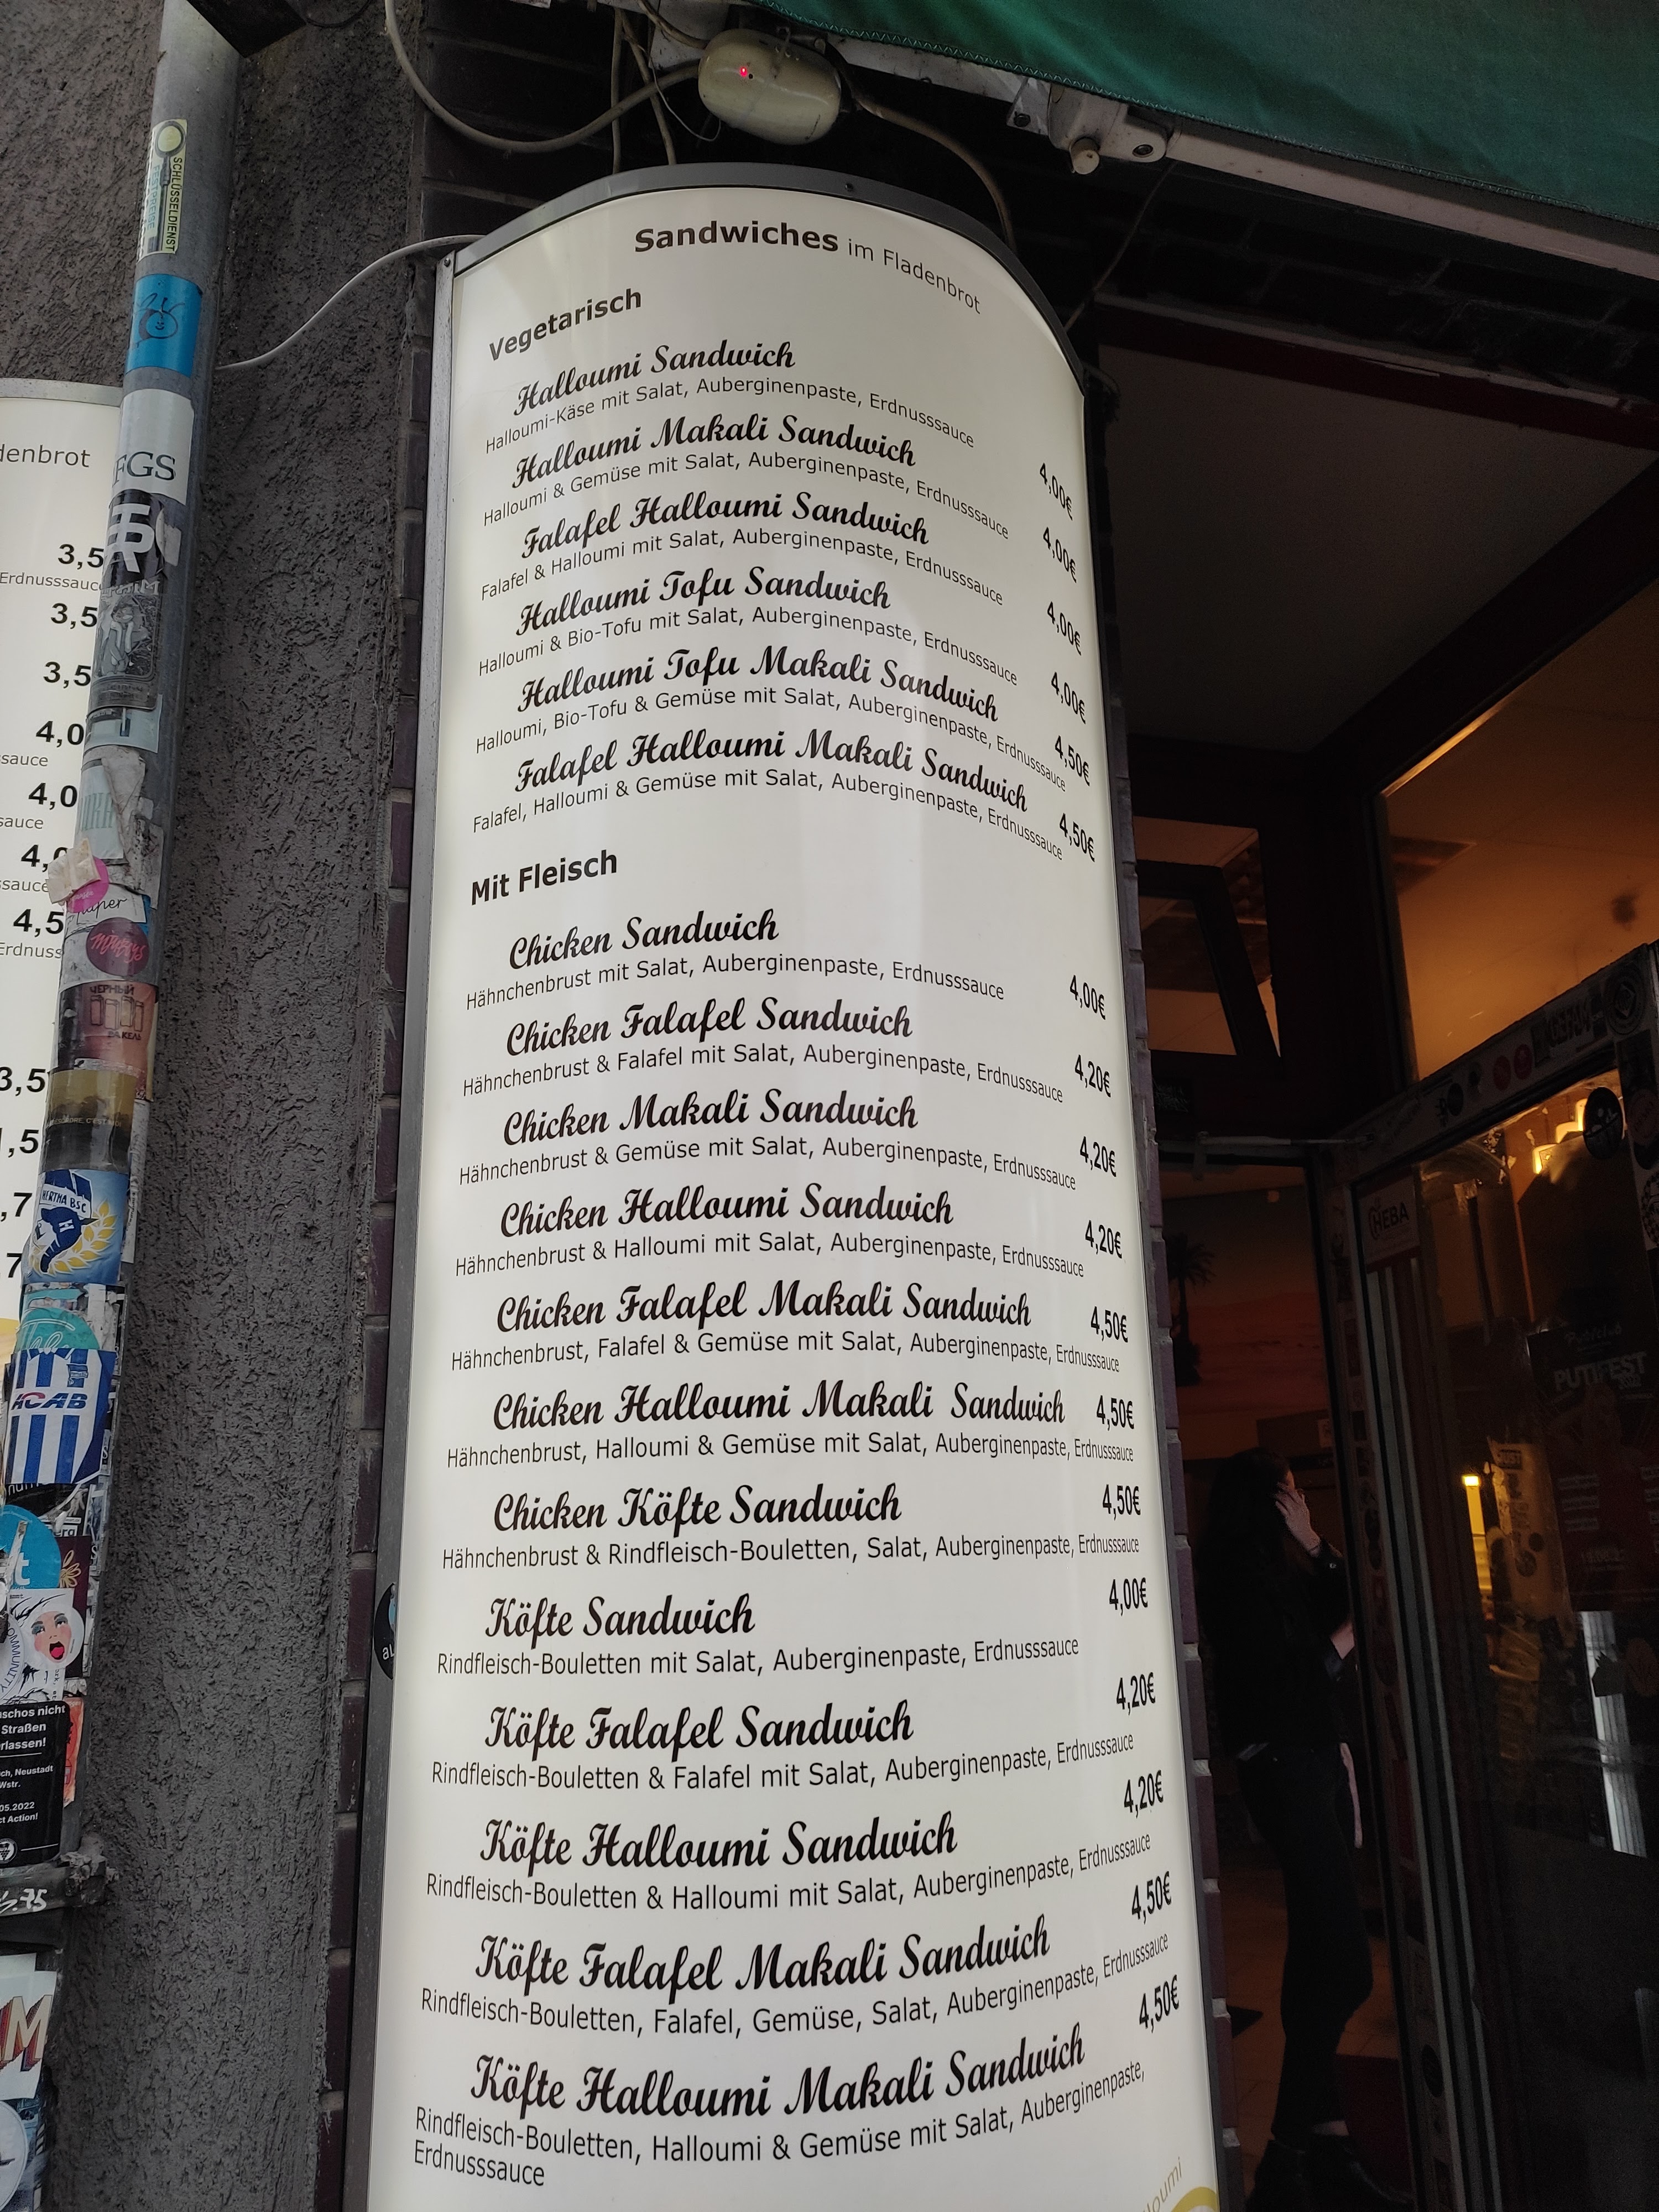 Sandwiches im Fladenbrot
Vegetarisch
Halloumi Sandwich
Halloumi-Käse mit Salat, Auberginenpaste, Erdnusssauce
4,00€
Halloumi Makali Sandwich
Halloumi & Gemüse mit Salat, Auberginenpaste, Erdnusssauce
4,00€
Falafel Halloumi Sandwich
Falafel & Halloumi mit Salat, Auberginenpaste, Erdnusssauce
4,00€
Halloumi Tofu Sandwich
Halloumi & Bio-Tofu mit Salat, Auberginenpaste, Erdnusssauce
4,00€
Halloumi Tofu Makali Sandwich
Halloumi, Bio-Tofu & Gemüse mit Salat, Auberginenpaste, Erdnusssauce
4,50€
Falafel Halloumi Makali Sandwich
Falafel, Halloumi & Gemüse mit Salat, Auberginenpaste, Erdnusssauce
4,50€
Mit Fleisch
Chicken Sandwich
Hähnchenbrust mit Salat, Auberginenpaste, Erdnusssauce
4,00€
Chicken Falafel Sandwich
Hähnchenbrust & Falafel mit Salat, Auberginenpaste, Erdnusssauce
4,20€
Chicken Makali Sandwich
Hähnchenbrust & Gemüse mit Salat, Auberginenpaste, Erdnusssauce
4,20€
Chicken Halloumi Sandwich
Hähnchenbrust & Halloumi mit Salat, Auberginenpaste, Erdnusssauce
4,20€
Chicken Falafel Makali Sandwich 4,50€
Hähnchenbrust, Falafel & Gemüse mit Salat, Auberginenpaste, Erdnusssauce
Chicken Halloumi Makali Sandwich 4,50€
Hähnchenbrust, Halloumi & Gemüse mit Salat, Auberginenpaste, Erdnusssauce
Chicken Köfte Sandwich 4,50€
Hähnchenbrust & Rindfleisch-Bouletten, Salat, Auberginenpaste, Erdnusssauce
Köfte Sandwich 4,00€
Rindfleisch-Bouletten mit Salat, Auberginenpaste, Erdnusssauce
Köfte Falafel Sandwich 4,20€
Rindfleisch-Bouletten & Falafel mit Salat, Auberginenpaste, Erdnusssauce
Köfte Halloumi Sandwich 4,20€
Rindfleisch-Bouletten & Halloumi mit Salat, Auberginenpaste, Erdnusssauce
Köfte Falafel Makali Sandwich 4,50€
Rindfleisch-Bouletten, Falafel, Gemüse, Salat, Auberginenpaste, Erdnusssauce
Köfte Halloumi Makali Sandwich 4,50€
Rindfleisch-Bouletten, Halloumi & Gemüse mit Salat, Auberginenpaste,
Erdnusssauce
denbrot
3,5
Erdnusssauce
3,5
3,5
4,0
sauce
4,0
sauce
4,0
ssauce
4,5
Erdnuss
3,5
,5
,7
,7
SCHLÜSSELDIENST
FGS
HERTHA BSC
ACAB
COMMUNITY
schos nicht
Straßen
rlassen!
ch, Neustadt
Wstr.
05.2022
ct Action!
HEBA
PUTIFEST